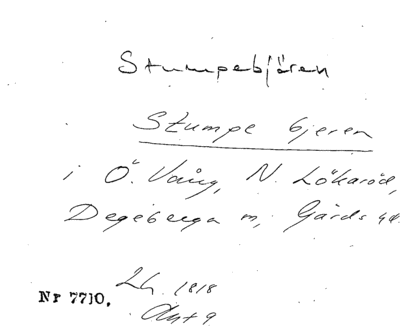 Stumpebjären
Stumpe bjeren
i Ö. Vång, N. Lökaröd,
Degeberga sn, Gärds hd.
Lh. 1818
Nr 7710. Akt 9